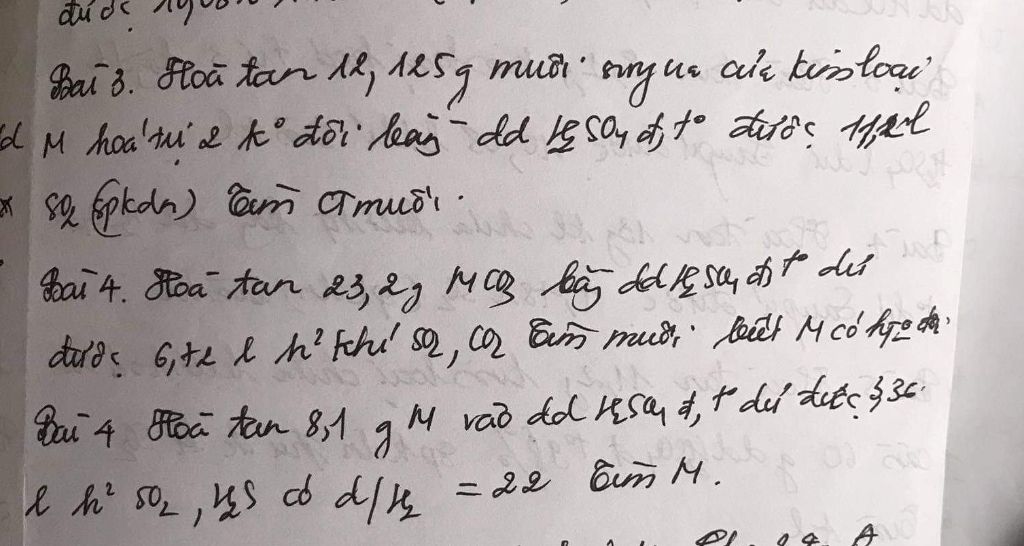 được
Bài 3. Hoà tan 12,125g muối sunfua của kim loại
M hoá trị 2 k° đổi bằg dd H2SO4 đ, t° được 11,2l
SO2 (spkdn) Tìm CT muối.
Bài 4. Hoà tan 23,2g MCO3 bằg dd H2SO4 đ, t° dư
được 6,72 l h² khí SO2, CO2 Tìm muối biết M có
Bài 4 Hoà tan 8,1 g M vào dd H2SO4 đ, t° dư được 3,36
l h² SO2, H2S có d/H2 = 22 Tìm M.